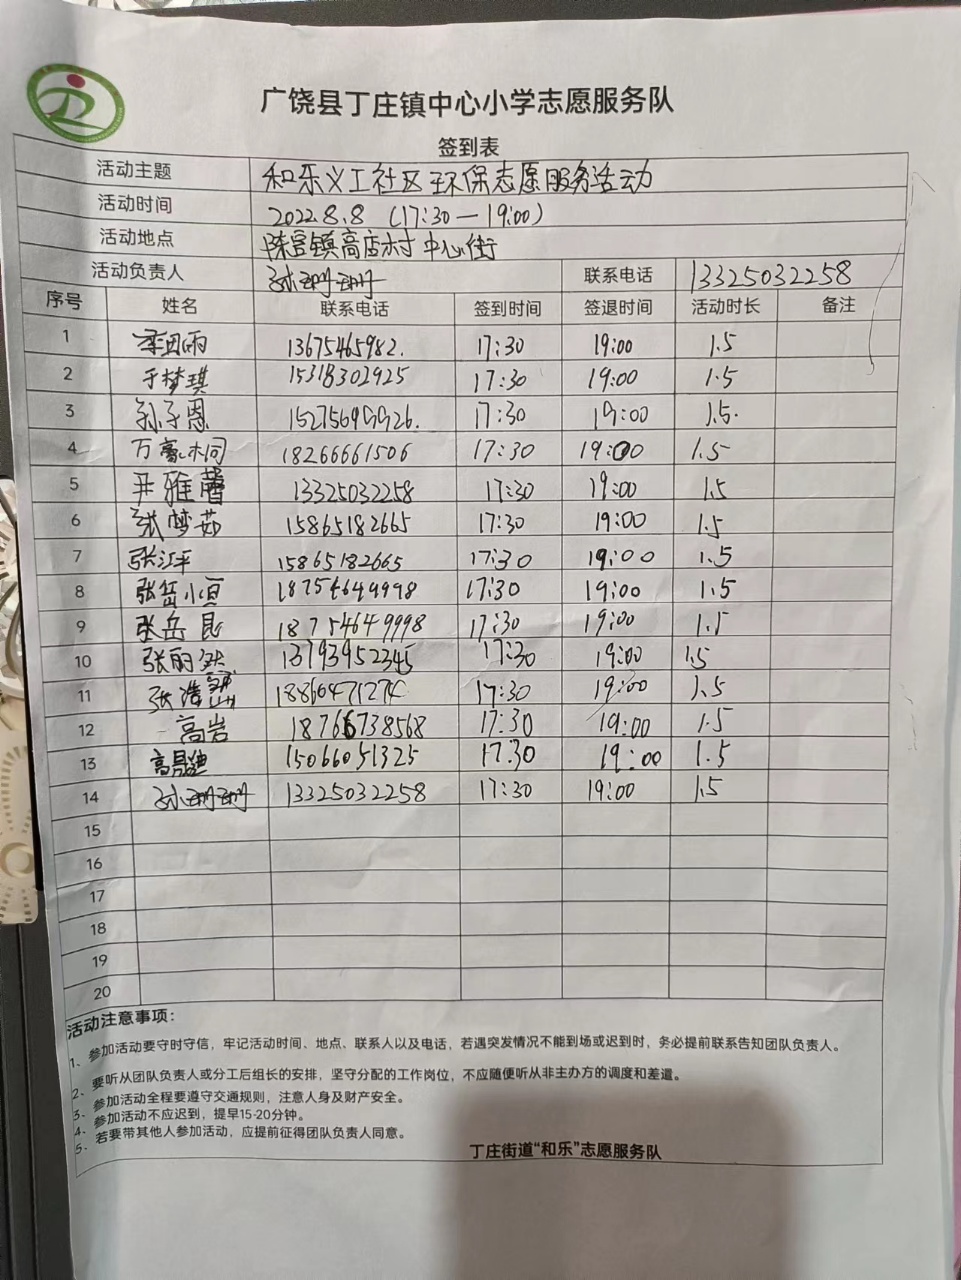 广饶县丁庄镇中心小学志愿服务队
签到表
活动主题 和乐义工社区环保志愿服务活动
活动时间 2022.8.8 (17:30—19:00)
活动地点 陈官镇高店村中心街
活动负责人 孙珊珊 联系电话 13325032258
序号 姓名 联系电话 签到时间 签退时间 活动时长 备注
1 13675465982. 17:30 19:00 1.5
2 于梦琪 15318302925 17:30 19:00 1.5
3 孙子恩 17:30 19:00 1.5.
4 万豪 18266661506 17:30 19:00 1.5
5 尹雅馨 13325032258 17:30 19:00 1.5
6 张梦茹 15865182665 17:30 19:00 1.5
7 张江平 15865182665 17:30 19:00 1.5
8 张岳恒 18754649998 17:30 19:00 1.5
9 张岳昆 18754649998 17:30 19:00 1.5
10 张丽 13793952345 17:30 19:00 1.5
11 张浩 18860471274 17:30 19:00 1.5
12 高岩 18766738568 17:30 19:00 1.5
13 15066051325 17.30 19:00 1.5
14 孙珊珊 13325032258 17:30 19:00 1.5
15
16
17
18
19
20
活动注意事项：
1、参加活动要守时守信，牢记活动时间、地点、联系人以及电话，若遇突发情况不能到场或迟到时，务必提前联系告知团队负责人。
2、要听从团队负责人或分工后组长的安排，坚守分配的工作岗位，不应随便听从非主办方的调度和差遣。
3、参加活动全程要遵守交通规则，注意人身及财产安全。
4、参加活动不应迟到，提早15-20分钟。
5、若要带其他人参加活动，应提前征得团队负责人同意。
丁庄街道“和乐”志愿服务队